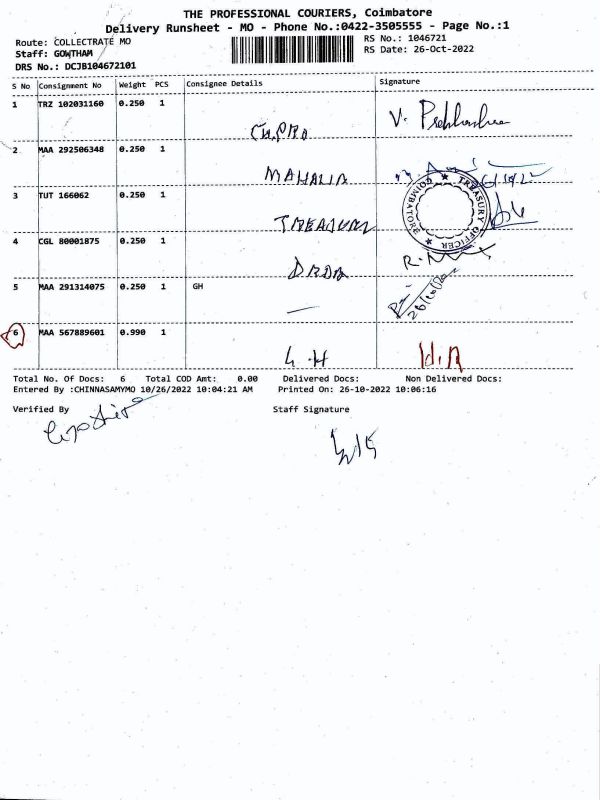 THE PROFESSIONAL COURIERS, Coimbatore
Delivery Runsheet - MO - Phone No.:0422-3505555 - Page No.:1
Route: COLLECTRATE MO
RS No.: 1046721
Staff: GOWTHAM
RS Date: 26-Oct-2022
DRS No.: DCJB104672101
S No Consignment No Weight PCS Consignee Details Signature
1 TRZ 102031160 0.250 1
2 MAA 292506348 0.250 1
MAHALIR
3 TUT 166062 0.250 1
TREASURY
COIMBATORE ★ TREASURY OFFICER ★
4 CGL 80001875 0.250 1
DRDA
5 MAA 291314075 0.250 1 GH
—
6 MAA 567889601 0.990 1
G.H
Total No. Of Docs: 6 Total COD Amt: 0.00 Delivered Docs: Non Delivered Docs:
Entered By :CHINNASAMYMO 10/26/2022 10:04:21 AM Printed On: 26-10-2022 10:06:16
Verified By Staff Signature